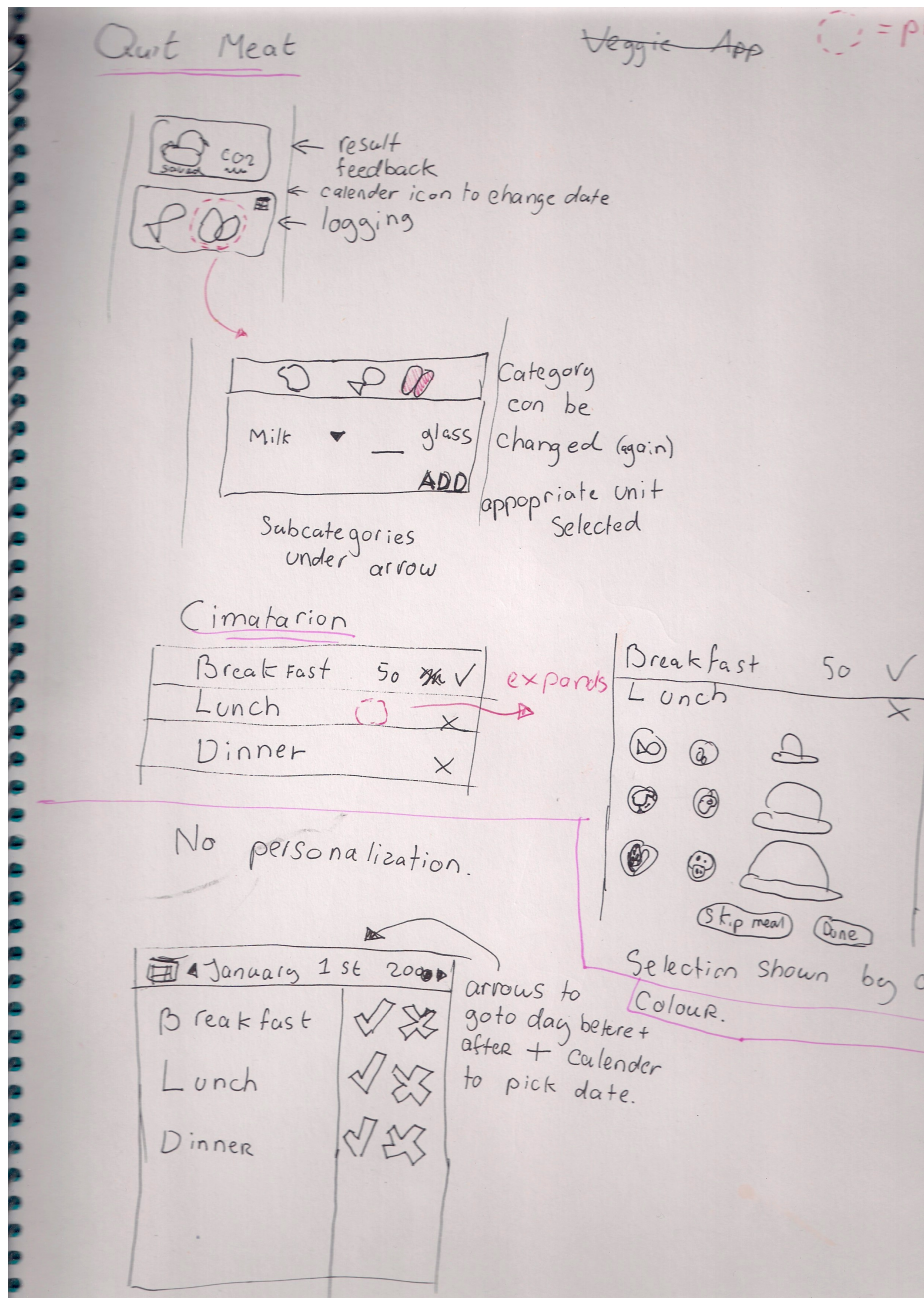 Quit Meat
Veggie App
= p
CO2
saved
← result
feedback
← calender icon to change date
← logging
Category
can be
changed (again)
appopriate unit
selected
Milk ▼ __ glass
ADD
Subcategories
under arrow
Cimatarion
Breakfast 50 ✓
Lunch x
Dinner x
expands
Breakfast 50 ✓
Lunch x
Skip meal Done
Selection shown by
Colour.
No personalization.
◀ January 1st ▶
Breakfast ✓ x
Lunch ✓ x
Dinner ✓ x
arrows to
goto day before +
after + calender
to pick date.